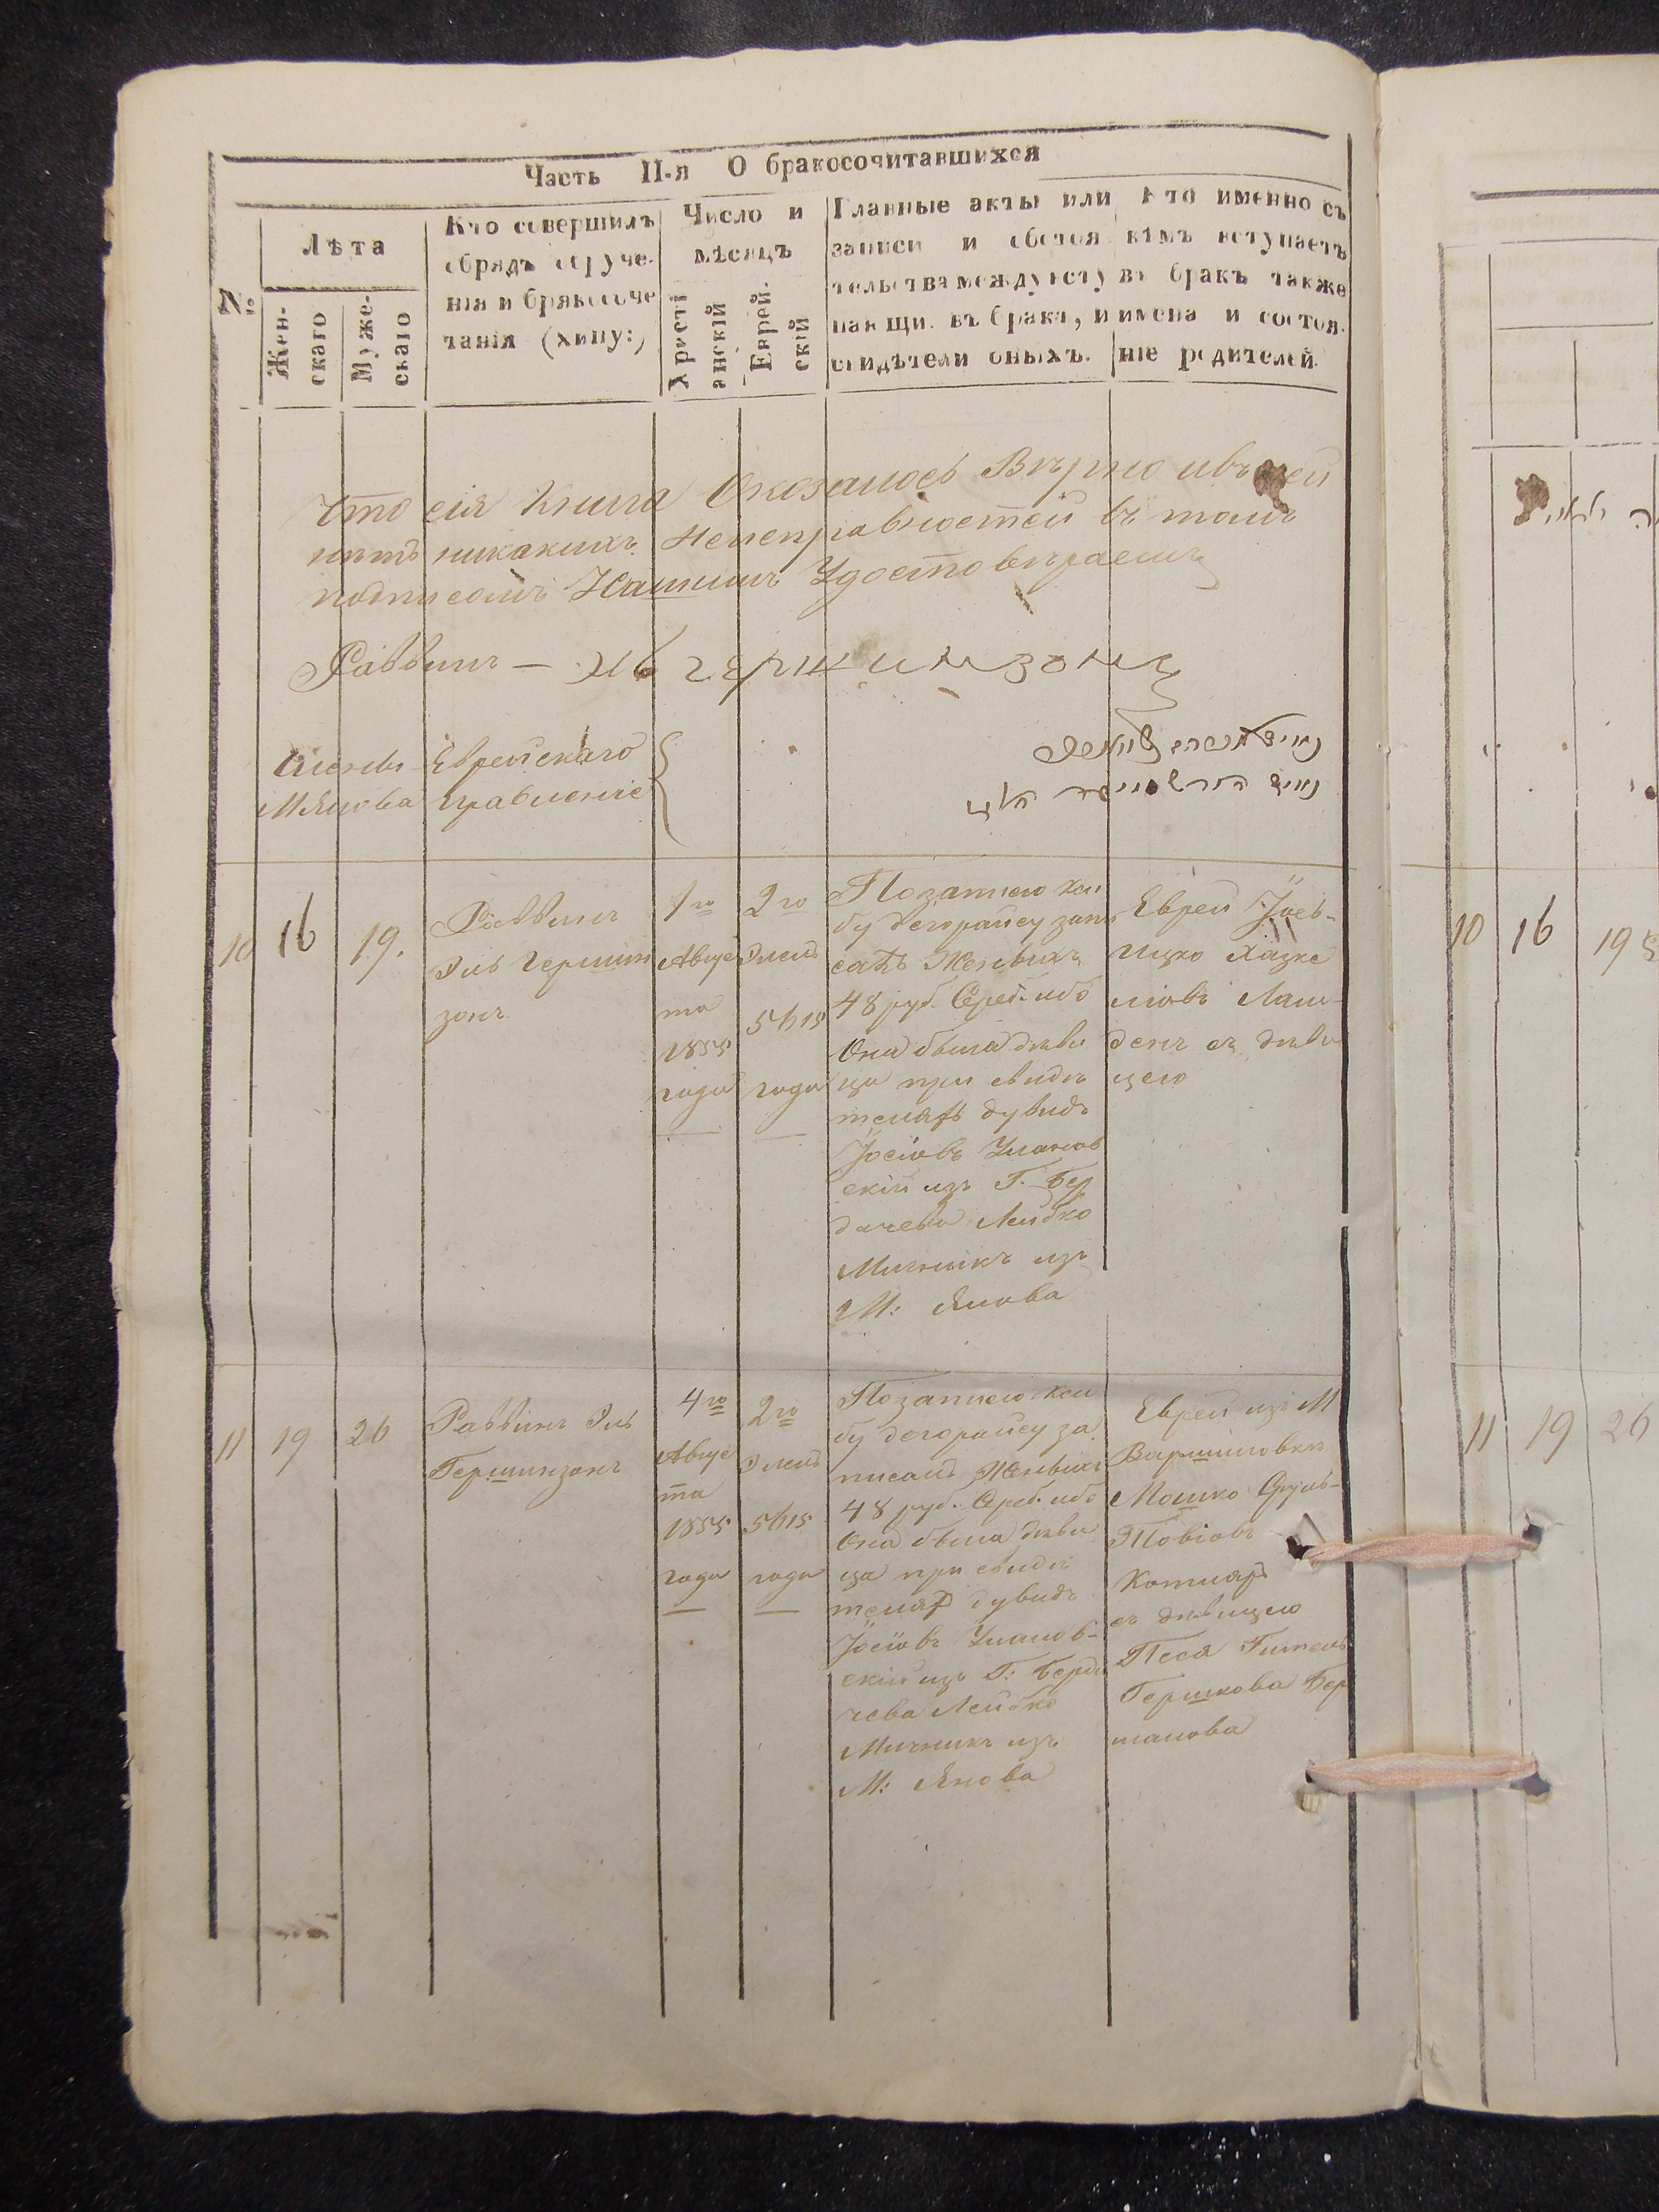 Часть II-я О бракосочитавшихся
№
Лѣта
Жен-
скаго
Муже-
скаго
Кто совершилъ
обрядъ обруче-
нія и бракосоче
танія (хипу:)
Число и
мѣсяцъ
Христі
анскій
Еврей-
скій
Главные акты или
записи и обстоя
тельства между всту
пающи. въ бракъ, и
свидѣтели оныхъ.
Кто именно съ
кѣмъ вступаетъ
въ бракъ также
имена и состоя-
ніе родителей.
Что сія Книга Оказалось Вѣрно ивъ ней
нѣтъ никакихъ Неисправностей въ томъ
подписомъ Нашимъ Удостовѣраемъ
Раввинъ —
Члены Еврейскаго
М Янова Правленіе
10
16
19.
Раввинъ
Эль Гершин
зонъ
1го
Авгус
та
1855
года
2го
Элемъ
5615
года
По записю Кси
бу дегорайсу запи
сатъ Женъвихъ
48 руб. Сереб. ибо
Она была дѣви
ца при свидѣ
теляхъ дувидъ
Іосіовъ Улановъ
скій изъ Г. Бер
дичева Лейбко
Мичникъ изъ
М: Янова
Еврей
Ицко Хазке
ліовъ
денъ съ дѣви
цею
11
19
26
Раввинъ Эль
Гершинзонъ
4го
Авгус
та
1855
года
2го
Элемъ
5615
года
По записю Кси
бу дегорайсу за
писанъ Женъвихъ
48 руб. Среб. ибо
Она была дѣви
ца при свидѣ
теляхъ дувидъ
Іосіовъ Уланов-
скій изъ Г: Берди
чева Лейбко
Мичникъ изъ
М: Янова
Еврей изъ М
Мошко Сруль-
Товіовъ
Котляръ
съ дѣвицею
Песя Гитель
Гершкова Бер
манова
10
16
19
11
19
26